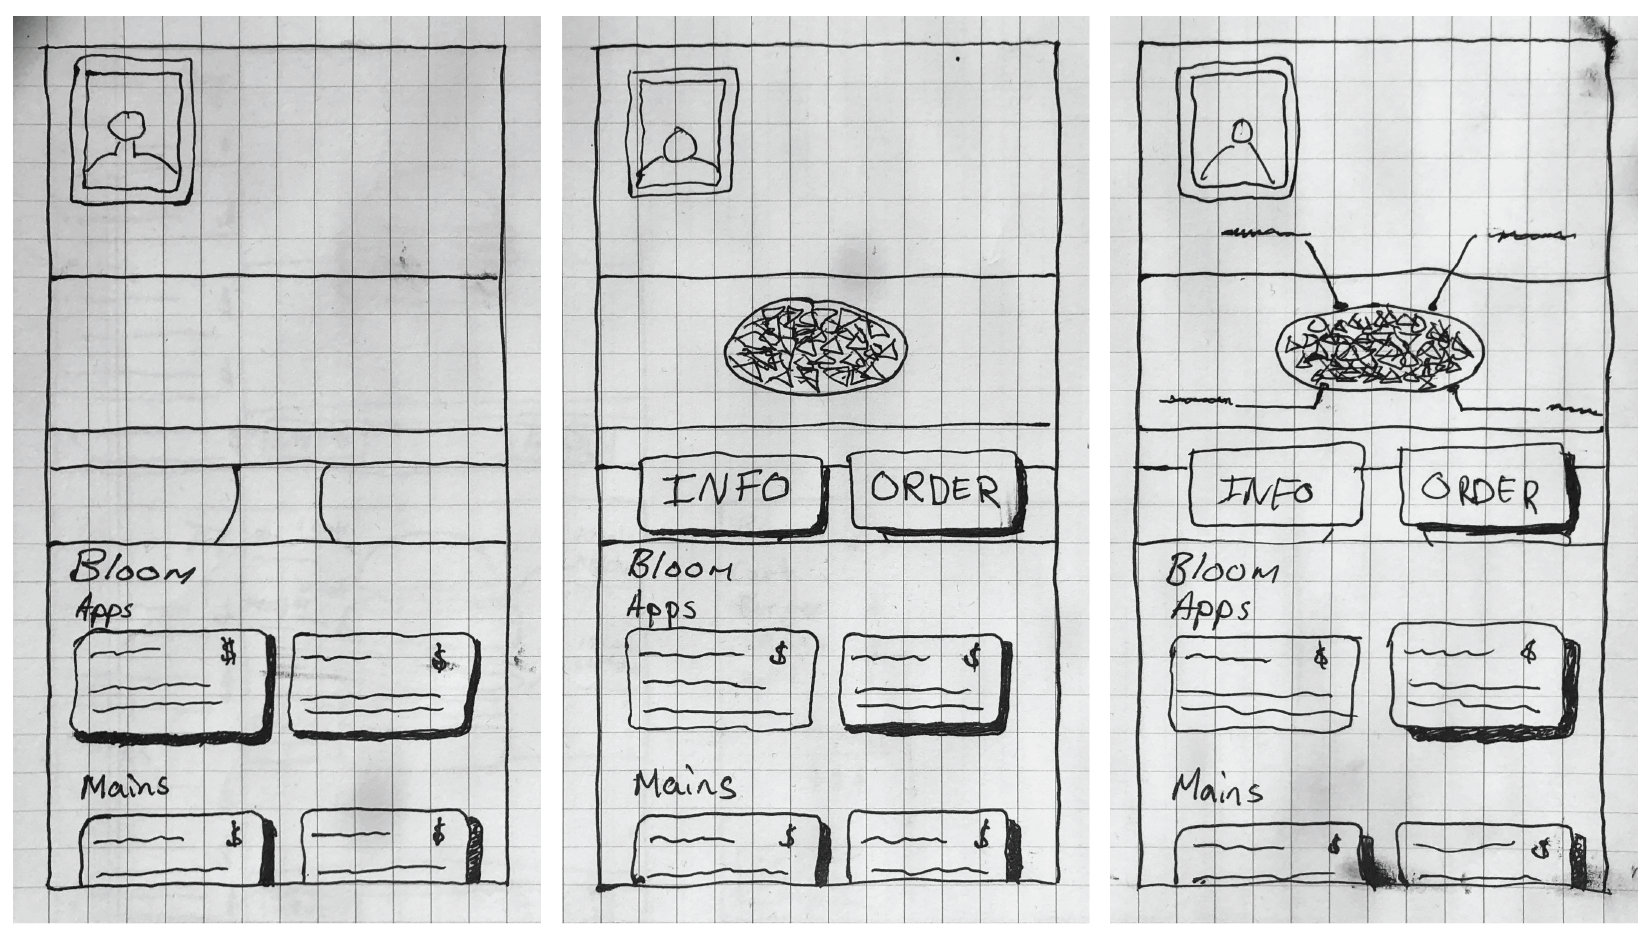 Bloom
Apps
$ $
Mains
$ $
INFO ORDER
Bloom
Apps
$ $
Mains
$ $
INFO ORDER
Bloom
Apps
$ $
Mains
$ $